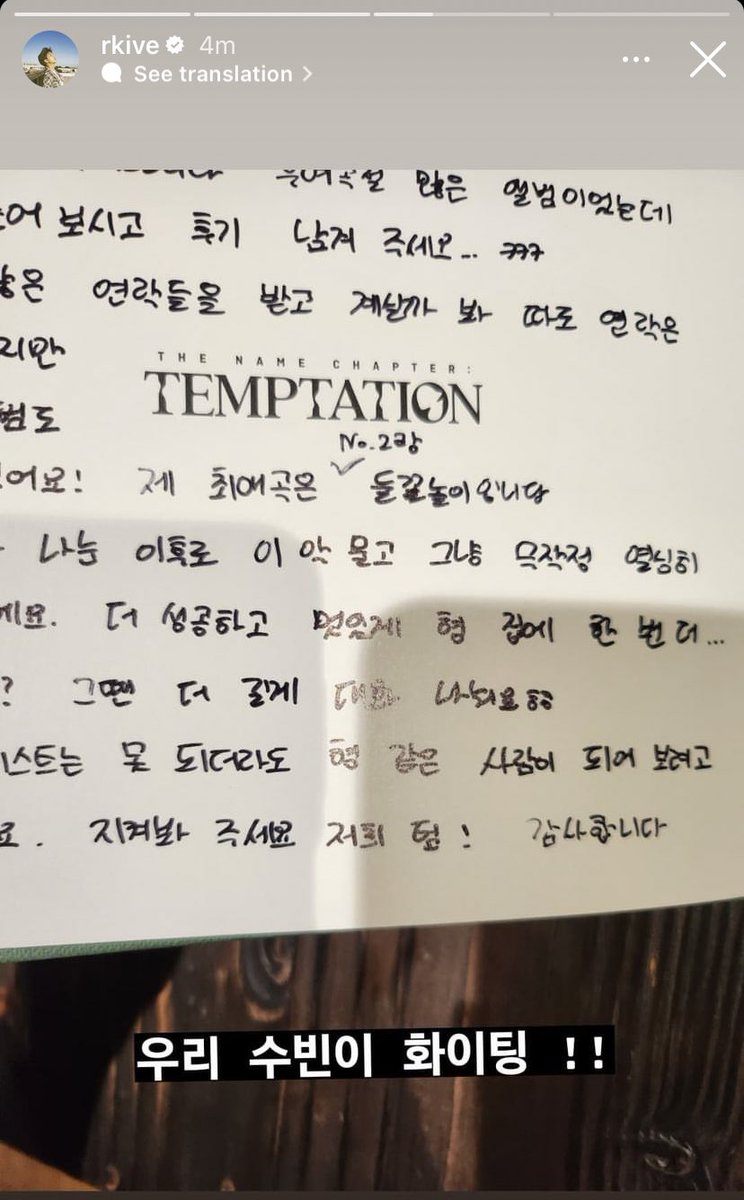 rkive 4m
See translation
우여곡절 많은 앨범이었는데
보시고 후기 남겨 주세요... ㅋㅋㅋ
연락들을 받고 계실까 봐 따로 연락은
지만
THE NAME CHAPTER:
TEMPTATION
No.2랑
제 최애곡은 ✓ 들판놀이입니다
나눈 이후로 이 악 물고 그냥 무작정 열심히
더 성공하고 멋있게 형 집에 한 번 더...
? 그땐 더 길게 대화 나눠요 ㅎㅎ
스트는 못 되더라도 형 같은 사람이 되어 보려고
요. 지켜봐 주세요 저희 팀! 감사합니다
우리 수빈이 화이팅 !!